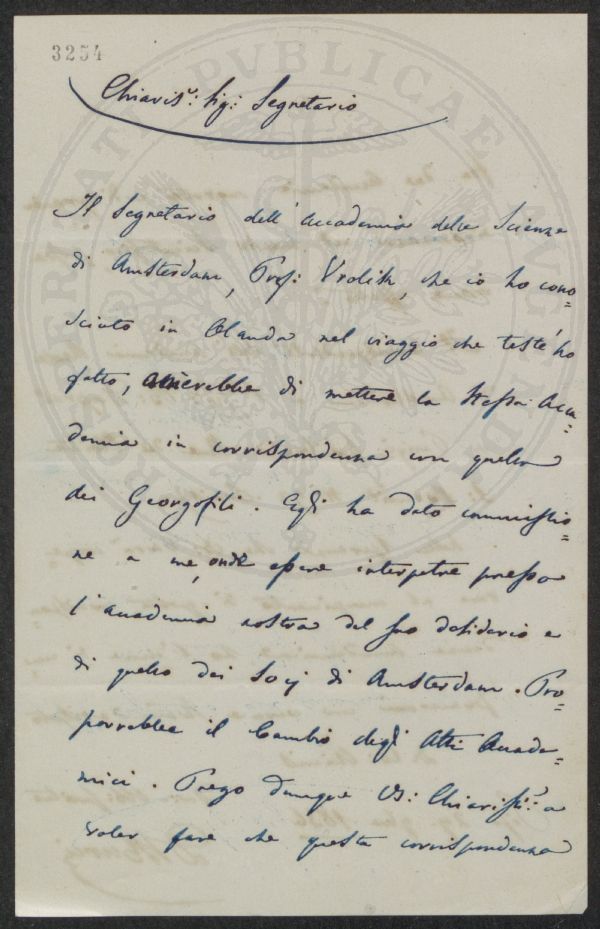 3254
Chiaris.mo: Sig.: Segretario
Il Segretario dell'Accademia delle Scienze
di Amsterdam, Prof: Vrolik, che io ho cono=
sciuto in Olanda nel viaggio che testè ho
fatto, amerebbe di mettere la stessa Acca=
demia in corrispondenza con quella
dei Georgofili. Egli ha dato commissio=
ne a me, onde essere interpetre presso
l'Accademia nostra del suo desiderio e
di quello dei Socj di Amsterdam. Pro=
porrebbe il Cambio degli Atti Accade=
mici. Prego dunque VS: Chiariss:a a
voler fare che questa corrispondenza